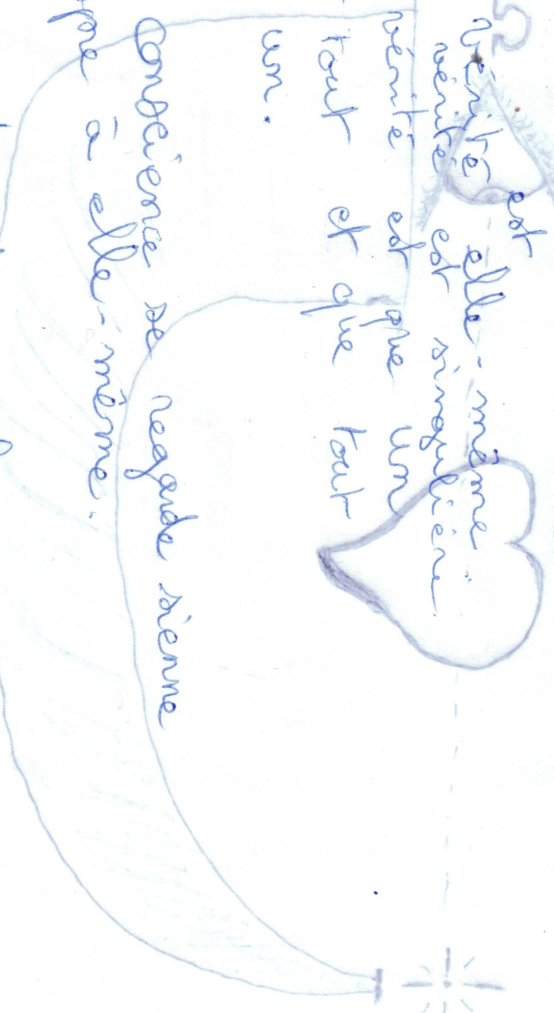 vérité est elle-même
vérité est singulière.
vérité est que un
tout et que tout
un.
Conscience se regarde sienne
à elle-même.